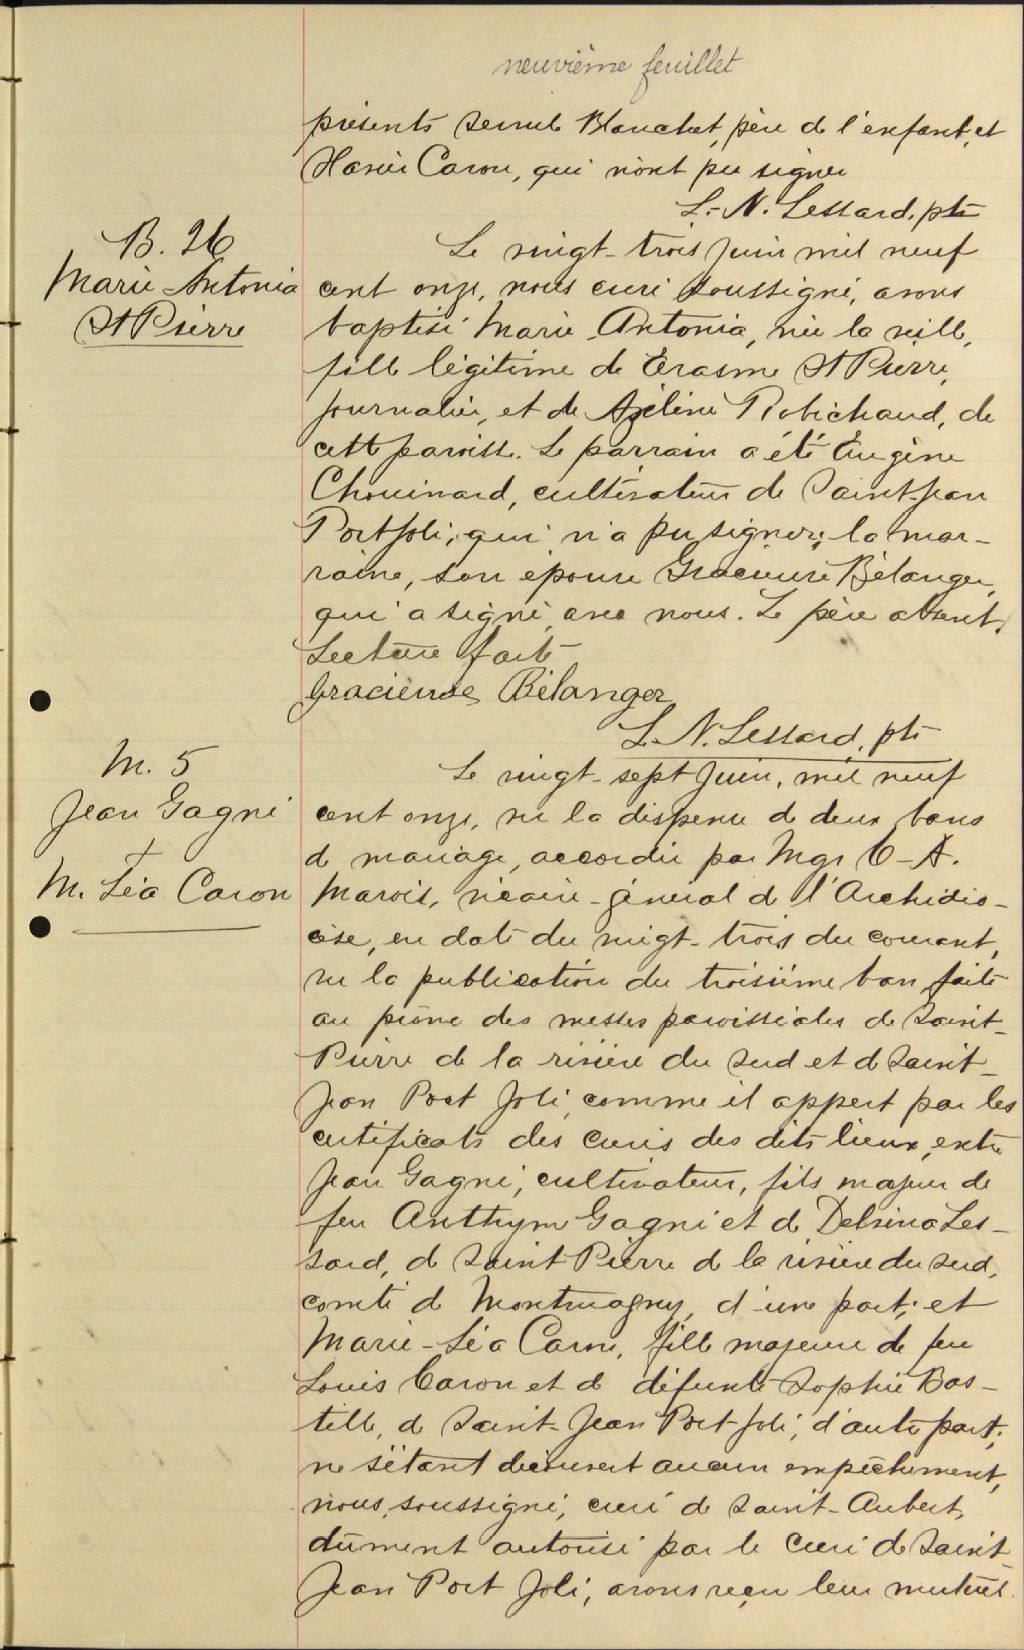 neuvième feuillet
présents Blanchet, père de l'enfant, et
Caron, qui n'ont pu signer
L.-N. Lessard, ptre
B. 26
Marie Antonia
St Pierre
Le vingt-trois juin mil neuf
cent onze, nous curé soussigné, avons
baptisé Marie Antonia, née la veille,
fille légitime de Erasme St Pierre,
journalier, et de Azéline Robichaud, de
cette paroisse. Le parrain a été Eugène
Chouinard, cultivateur de Saint-Jean
Port Joli, qui n'a pu signer; la mar-
raine, son épouse Gracieuse Bélanger,
qui a signé avec nous. Le père absent.
Lecture faite
Gracieuse Bélanger
L.-N. Lessard, ptre
M. 5
Jean Gagné
+
M. Léa Caron
Le vingt-sept juin, mil neuf
cent onze, vu la dispense de deux bans
de mariage, accordée par Mgr C-A.
Marois, vicaire-général de l'Archidio-
cèse, en date du vingt-trois du courant,
vu la publication du troisième ban faite
au prône des messes paroissiales de Saint-
Pierre de la rivière du Sud et de Saint-
Jean Port Joli, comme il appert par les
certificats des curés des dits lieux, entre
Jean Gagné, cultivateur, fils majeur de
feu Anthyme Gagné et de Delvina Les-
sard, de Saint Pierre de la rivière du Sud,
comté de Montmagny, d'une part; et
Marie-Léa Caron, fille majeure de feu
Louis Caron et de défunte Sophie Bas-
tille, de Saint-Jean Port-Joli, d'autre part;
ne s'étant découvert aucun empêchement,
nous, soussigné, curé de Saint-Aubert,
dûment autorisé par le curé de Saint
Jean Port Joli, avons reçu leur mutuel